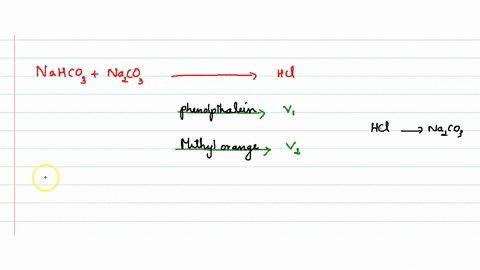 NaHCO₃ + Na₂CO₃ ⟶ HCl
phenolpthalein V₁
Methyl orange V₂
HCl ⟶ Na₂CO₃